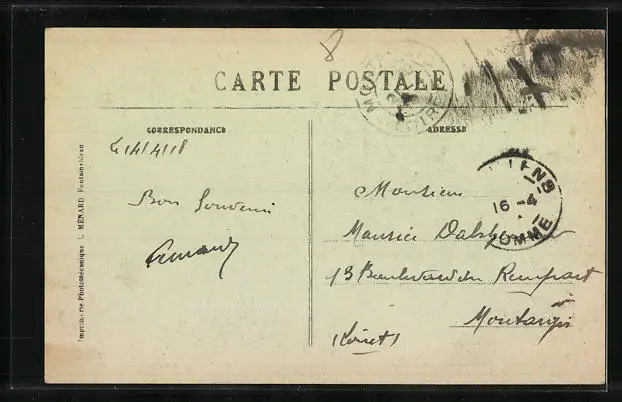 8
CARTE POSTALE
CORRESPONDANCE
ADRESSE
Le 14/4/18
Bon Souvenir
Monsieur
Maurice
13 Boulevard du Rempart
à Montargis
(Loiret)
16-4
SOMME
Imprimerie Photomécanique L. MÉNARD. Fontainebleau